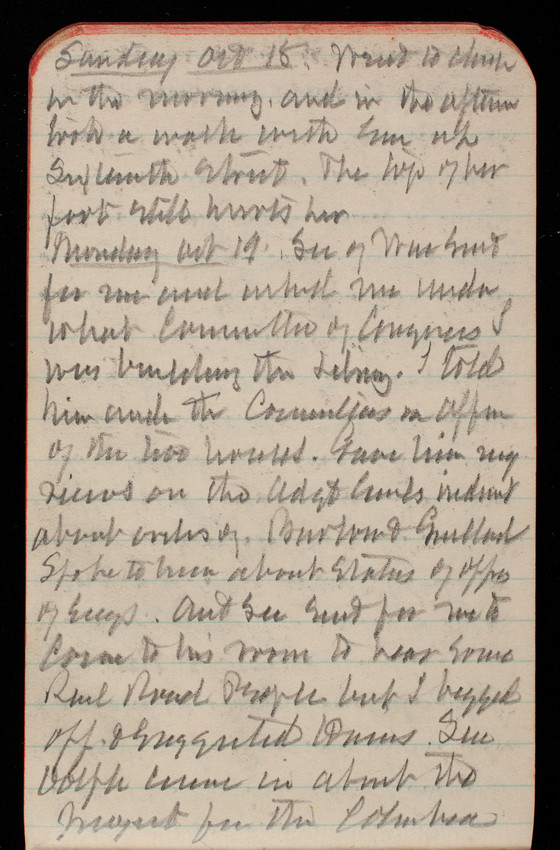 Sunday Oct 18. Went to church
in the morning. and in the aftern
took a walk with Em up
Sixteenth Street. The top of her
foot still hurts her
Monday Oct 19. Sec of War Sent
for me and asked me under
what Committee of Congress I
was building the Library. I told
him under the Committees on
of the two houses. Gave him my
views on the Adgt Genls
about orders of.
Spoke to him about Status of offrs
of Engrs. Ast Sec Sent for me to
Come to his room to hear Some
Rail Road People but I begged
off. & Suggested Sen
Dolph came in about the
project for the Columbia